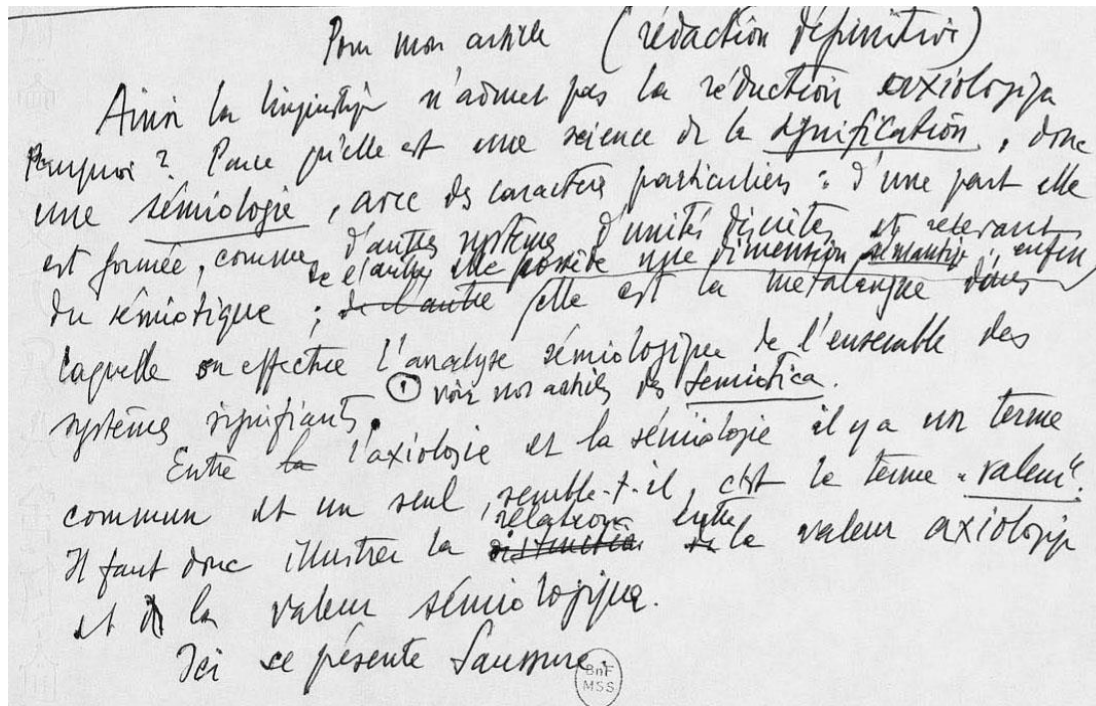 Pour mon article (rédaction définitive)
Ainsi la linguistique n'admet pas la réduction axiologique
Pourquoi ? Parce qu'elle est une science de la signification, donc
une sémiologie, avec des caractères particuliers : d'une part elle
est formée, comme d'autres systèmes, d'unités discrètes et relevant
de l'autre elle possède une dimension sémantique ; enfin
du sémiotique ; de l'autre elle est la métalangue dans
laquelle on effectue l'analyse sémiologique de l'ensemble des
systèmes signifiants. ① voir nos articles ds Semiotica.
Entre la l'axiologie et la sémiologie il y a un terme
commun et un seul, semble-t-il, c'est le terme "valeur".
relation entre
Il faut donc illustrer la distinction de la valeur axiologique
et la valeur sémiologique.
Ici se présente Saussure.
BnF
MSS